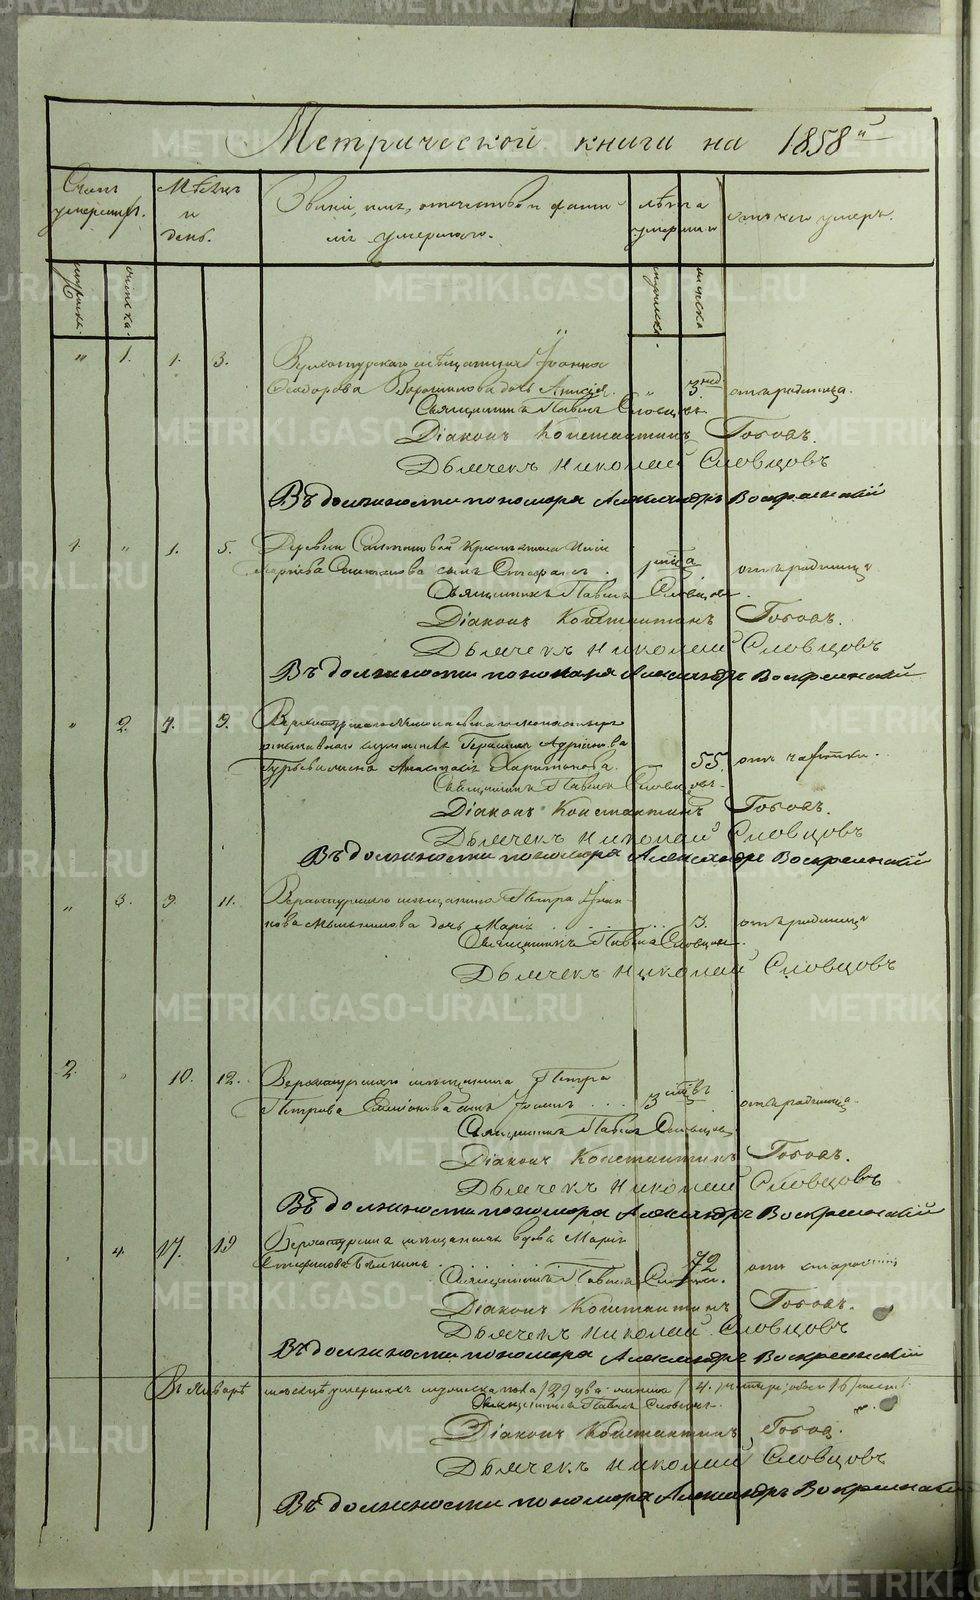 Метрической книги на 1858й
Счетъ умершихъ.
Мѣсяцъ и день.
Званіе, имя, отечество и фами-
лія умершаго.
лѣта умершаго
отъ чего умеръ.
мужска.
женска.
мужска
женска
" 1. 1. 3. Верхотурскаго мѣщанина Іоанна
Ѳеодорова дочь " 3 нед отъ родимца.
Священникъ Павелъ Словцовъ.
Діаконъ Константинъ Топовъ.
Дьячекъ Николай Словцовъ
Въ должности пономаря Александръ Воскресенскій
1. " 1. 5. Деревни
сынъ отъ родимца.
Священникъ Павелъ Словцовъ.
Діаконъ Константинъ Топовъ.
Дьячекъ Николай Словцовъ
Въ должности пономаря Александръ Воскресенскій
" 2. 7. 9. Верхотурскаго Николаевскаго монастыря
отставнаго служителя Герасима Адріанова
жена Анастасія Харитонова. 55. отъ чахотки.
Священникъ Павелъ Словцовъ.
Діаконъ Константинъ Топовъ.
Дьячекъ Николай Словцовъ
Въ должности пономаря Александръ Воскресенскій
" 3. 9. 11. Верхотурскаго мѣщанина Петра Іоан-
нова дочь Марія 3. отъ родимца
Священникъ Павелъ Словцовъ.
Дьячекъ Николай Словцовъ
2. " 10. 12. Верхотурскаго мѣщанина Петра
Петрова сынъ Іоаннъ 3 отъ родимца.
Священникъ Павелъ Словцовъ.
Діаконъ Константинъ Топовъ.
Дьячекъ Николай Словцовъ
Въ должности пономаря Александръ Воскресенскій
4. 17. 19 Верхотурская мѣщанская вдова Марія
Стефанова 72 отъ старости
Священникъ Павелъ Словцовъ.
Діаконъ Константинъ Топовъ.
Дьячекъ Николай Словцовъ
Въ должности пономаря Александръ Воскресенскій
Въ Январѣ мѣсяцѣ умершихъ мужска пола /2/ два женска /4/ четыре, обоего /6/ шесть.
Священникъ Павелъ Словцовъ.
Діаконъ Константинъ Топовъ.
Дьячекъ Николай Словцовъ
Въ должности пономаря Александръ Воскресенскій
METRIKI.GASO-URAL.RU